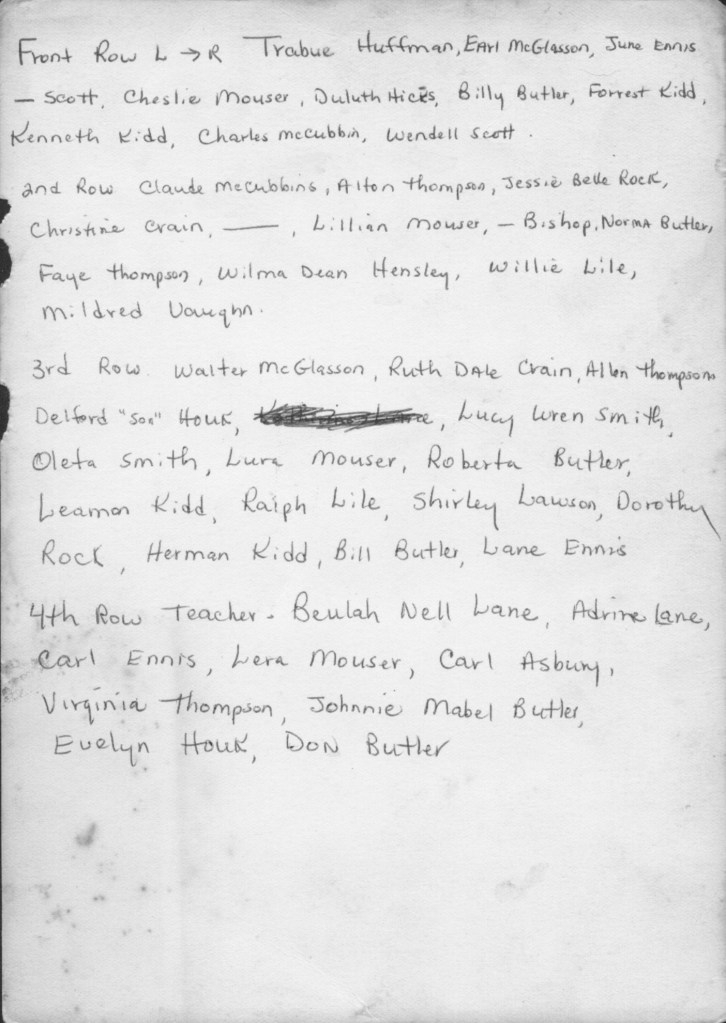 Front Row L → R Trabue Huffman, Earl McGlasson, June Ennis
— Scott, Cheslie Mouser, Duluth Hicks, Billy Butler, Forrest Kidd,
Kenneth Kidd, Charles McCubbin, Wendell Scott.
2nd Row Claude McCubbins, Alton Thompson, Jessie Belle Rock,
Christine Crain, —, Lillian Mouser, — Bishop, Norma Butler,
Faye Thompson, Wilma Dean Hensley, Willie Lile,
Mildred Vaughn.
3rd Row. Walter McGlasson, Ruth Dale Crain, Allen Thompson
Delford "Son" Houk, Lucy Wren Smith,
Oleta Smith, Lura Mouser, Roberta Butler,
Leamon Kidd, Ralph Lile, Shirley Lawson, Dorothy
Rock, Herman Kidd, Bill Butler, Lane Ennis
4th Row Teacher - Beulah Nell Lane, Adrine Lane,
Carl Ennis, Lera Mouser, Carl Asbury,
Virginia Thompson, Johnnie Mabel Butler,
Evelyn Houk, Don Butler